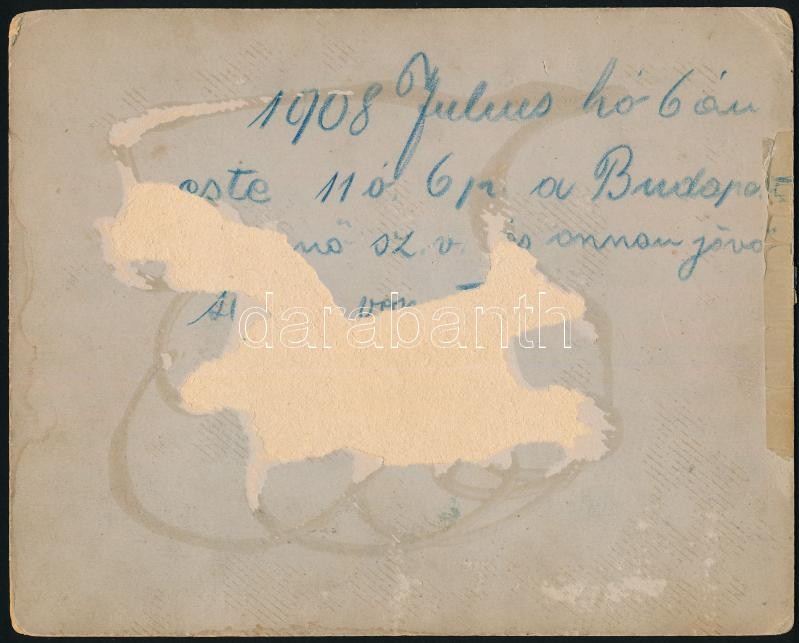 1908 Julius hó 6 án
este 11 ó. 6 p. a Budapest
nő sz. v. és onnan jövő
darabanth